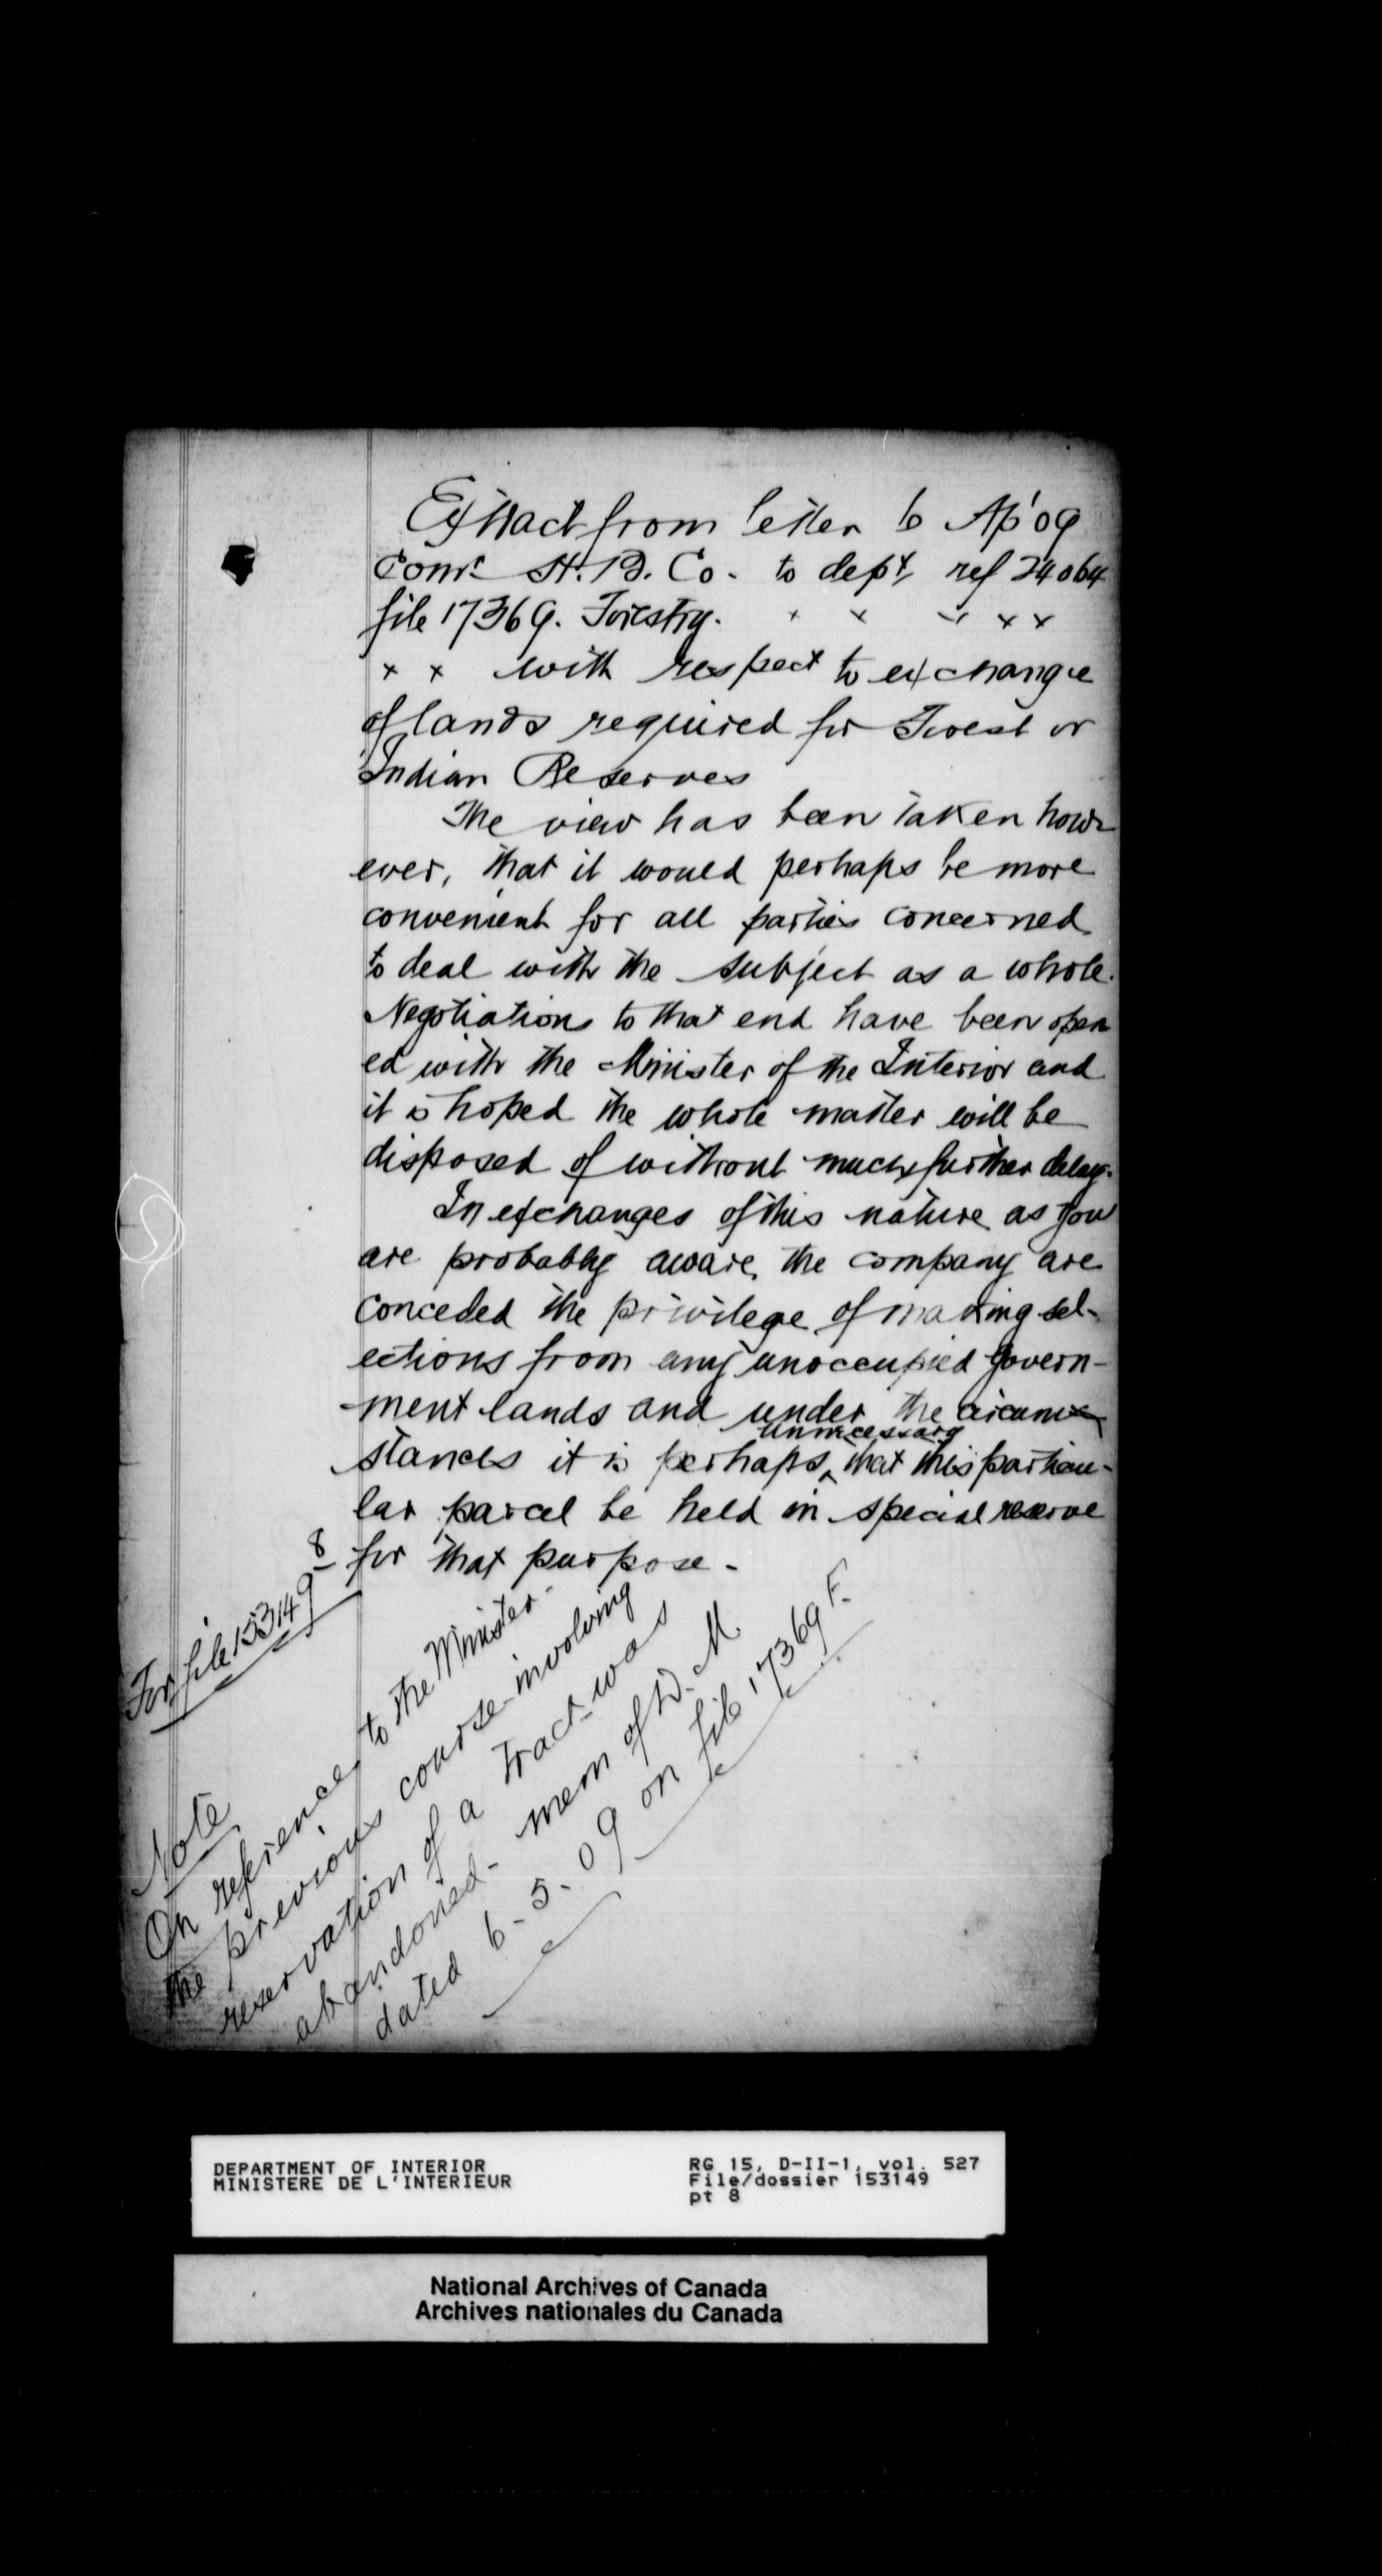 Extract from letter 6 Ap '09
Comr H.B. Co. to dept, ref 24064
file 17369. Forestry. x x x x x
x x with respect to exchange
of lands required for Forest or
Indian Reserves
The view has been taken how-
ever, that it would perhaps be more
convenient for all parties concerned
to deal with the subject as a whole.
Negotiations to that end have been open
ed with the Minister of the Interior and
it is hoped the whole matter will be
disposed of without much further delay.
In exchanges of this nature as you
are probably aware, the company are
conceded the privilege of making sel-
ections from any unoccupied Govern-
ment lands and under the circum-
unnecessary
stances it is perhaps ‸ that this particu-
lar parcel be held in special reserve
for that purpose -
For file 153149 8
Note
On reference to the Minister -
the previous course involving
reservation of a tract was
abandoned - mem of D. M.
dated 6-5-09 on file 17369 F.
DEPARTMENT OF INTERIOR
MINISTERE DE L'INTERIEUR
RG 15, D-II-1, vol. 527
File/dossier 153149
pt 8
National Archives of Canada
Archives nationales du Canada